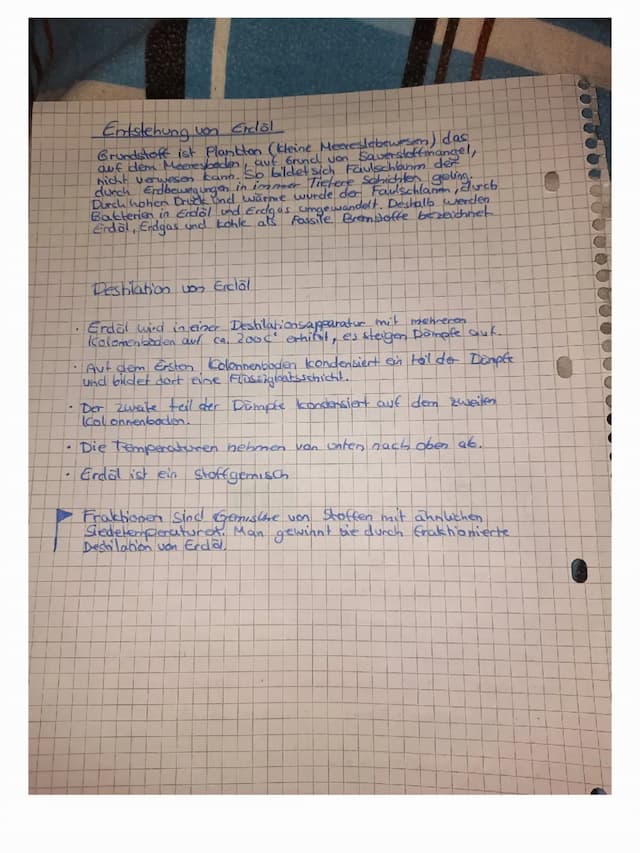 Entstehung von Erdöl
Grundstoff ist Plankton (kleine Meereslebewesen) das
auf dem Meeresboden, auf Grund von Sauerstoffmangel,
nicht verwesen kann. So bildet sich Faulschlamm der
durch Erdbewegungen in immer Tiefere Schichten gelang.
Durch hohen Druck und wärme wurde der Faulschlamm, durch
Bakterien in Erdöl und Erdgas umgewandelt. Deshalb werden
Erdöl, Erdgas und Kohle als Fossile Brennstoffe bezeichnet
Destilation von Erdöl
· Erdöl wird in einer Destilationsapparatur mit mehreren
Kolonenböden auf ca. 200C° erhitzt, es steigen Dämpfe auf.
· Auf dem Ersten Kolonnenboden kondensiert ein teil der Dämpfe
und bildet dort eine Flüssigkeitsschicht.
· Der zweite teil der Dämpfe kondensiert auf dem zweiten
Kolonnenboden.
· Die Temperaturen nehmen von unten nach oben ab.
· Erdöl ist ein Stoffgemisch
Fraktionen sind Gemische von Stoffen mit ähnlichen
Siedetemperaturen. Man gewinnt sie durch Fraktionierte
Destilation von Erdöl.